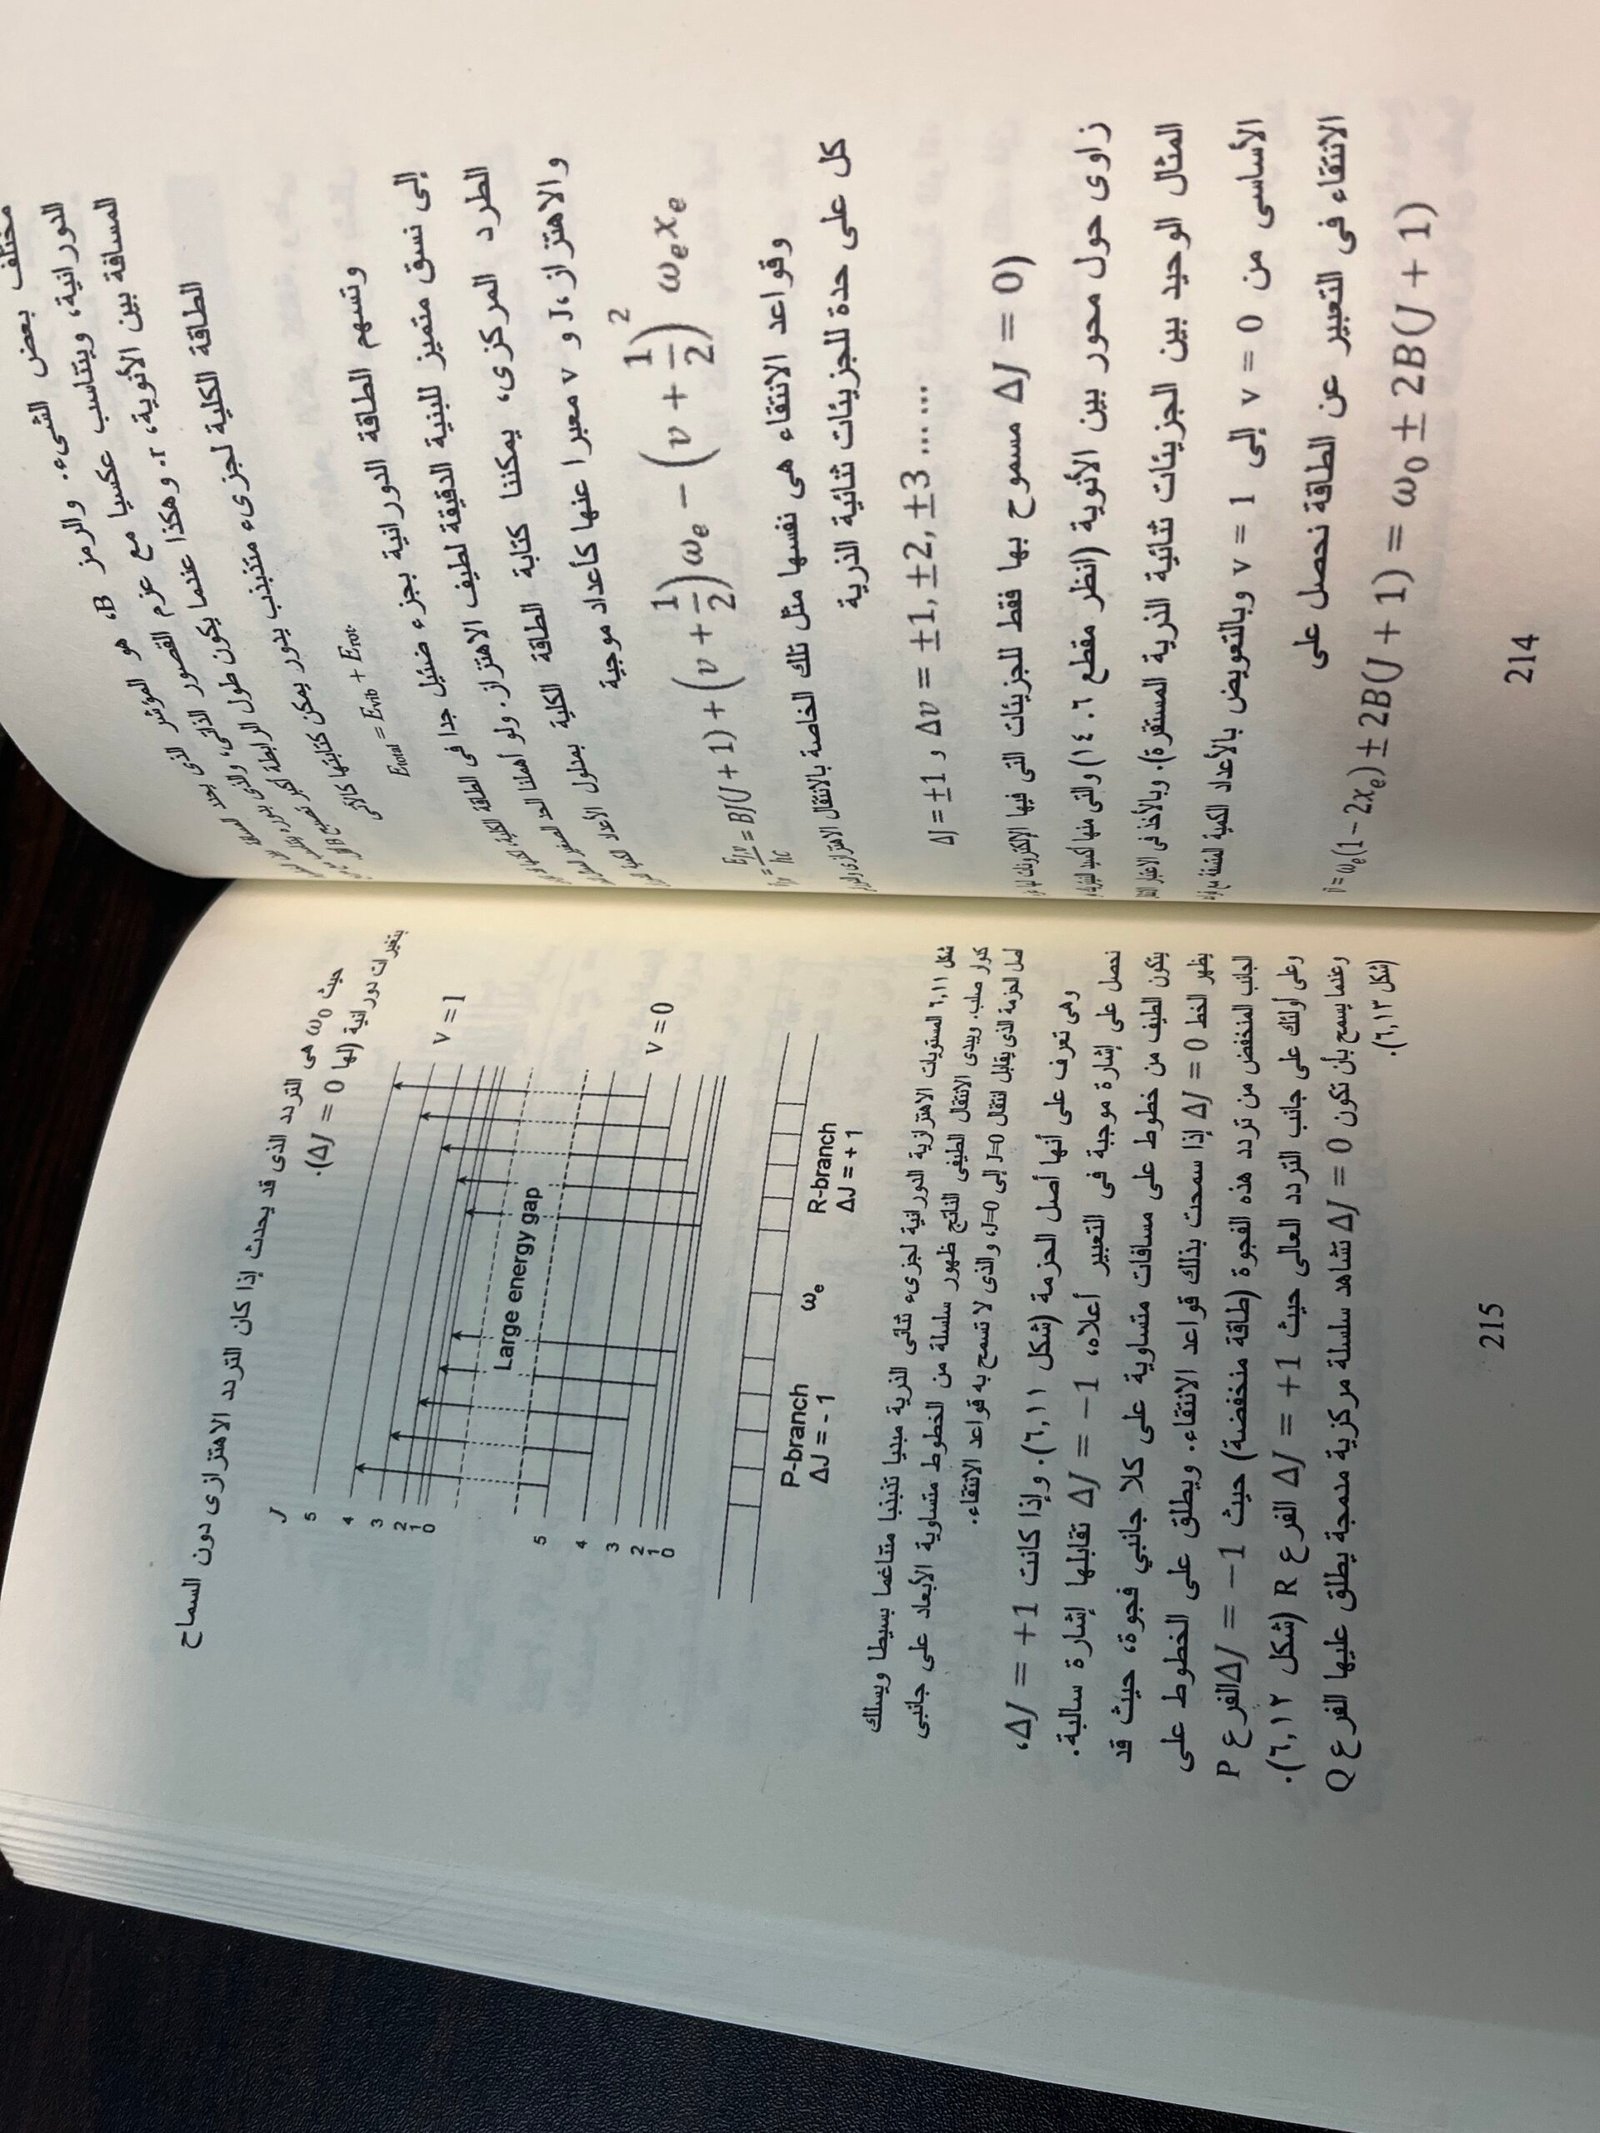 مختلف بعض الشىء. والرمز B، هو المؤشر الذى يحدد
الدورانية، ويتناسب عكسيا مع عزم القصور الذاتى، والذى بدوره
المسافة بين الأنوية، r. وهكذا عندما يكون طول الرابطة أكبر تصبح B
الطاقة الكلية لجزىء متذبذب يدور يمكن كتابتها كالآتى
Etotal = Evib + Erot.
وتسهم الطاقة الدورانية بجزء ضئيل جدا فى الطاقة الكلية
إلى نسق متميز للبنية الدقيقة لطيف الاهتزاز. ولو أهملنا الحد الصغير
الطرد المركزى، يمكننا كتابة الطاقة الكلية بمدلول الأعداد الكمية
والاهتزاز، J و v معبرا عنها كأعداد موجية
= BJ(J + 1) + (v + 1/2) ωe − (v + 1/2)² ωexe
وقواعد الانتقاء هى نفسها مثل تلك الخاصة بالانتقال الاهتزازى والدورانى
كل على حدة للجزيئات ثنائية الذرية
ΔJ = ±1 و Δv = ±1, ±2, ±3 ... ...
(ΔJ = 0 مسموح بها فقط للجزيئات التى فيها الإلكترونات لها
زاوى حول محور بين الأنوية (انظر مقطع ١٤.٦) والتى منها أكسيد النيتريك،
المثال الوحيد بين الجزيئات ثنائية الذرية المستقرة). وبالأخذ فى الاعتبار
الأساسى من v = 0 إلى v = 1 وبالتعويض بالأعداد الكمية
الانتقاء فى التعبير عن الطاقة نحصل على
ν̄ = ωe(1 − 2xe) ± 2B(J + 1) = ω0 ± 2B(J + 1)
214
حيث ω0 هى التردد الذى قد يحدث إذا كان التردد الاهتزازى دون السماح
بتغيرات دورانية (لها ΔJ = 0).
J
5
4
3
2
1
0
V = 1
Large energy gap
5
4
3
2
1
0
V = 0
P-branch
ΔJ = - 1
ωe
R-branch
ΔJ = + 1
شكل ٦,١١ المستويات الاهتزازية الدورانية لجزىء ثنائى الذرية مبديا تذبذبا متناغما بسيطا ويسلك
كدوار صلب. ويبدى الانتقال الطيفى الناتج ظهور سلسلة من الخطوط متساوية الأبعاد على جانبى
أصل الحزمة الذى يقابل انتقال J=0 إلى J=0، والذى لا تسمح به قواعد الانتقاء.
وهى تعرف على أنها أصل الحزمة (شكل ٦,١١). وإذا كانت ΔJ = +1،
نحصل على إشارة موجبة فى التعبير أعلاه، ΔJ = −1 تقابلها إشارة سالبة.
يتكون الطيف من خطوط على مسافات متساوية على كلا جانبي فجوة، حيث قد
يظهر الخط ΔJ = 0 إذا سمحت بذلك قواعد الانتقاء. ويطلق على الخطوط على
الجانب المنخفض من تردد هذه الفجوة (طاقة منخفضة) حيث ΔJ = −1 الفرع P
وعلى أولئك على جانب التردد العالى حيث ΔJ = +1 الفرع R (شكل ٦,١٢).
وعندما يسمح بأن تكون ΔJ = 0 تشاهد سلسلة مركزية مدمجة يطلق عليها الفرع Q
(شكل ٦,١٣).
215